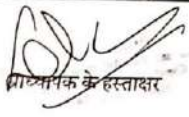 प्राध्यापक के हस्ताक्षर